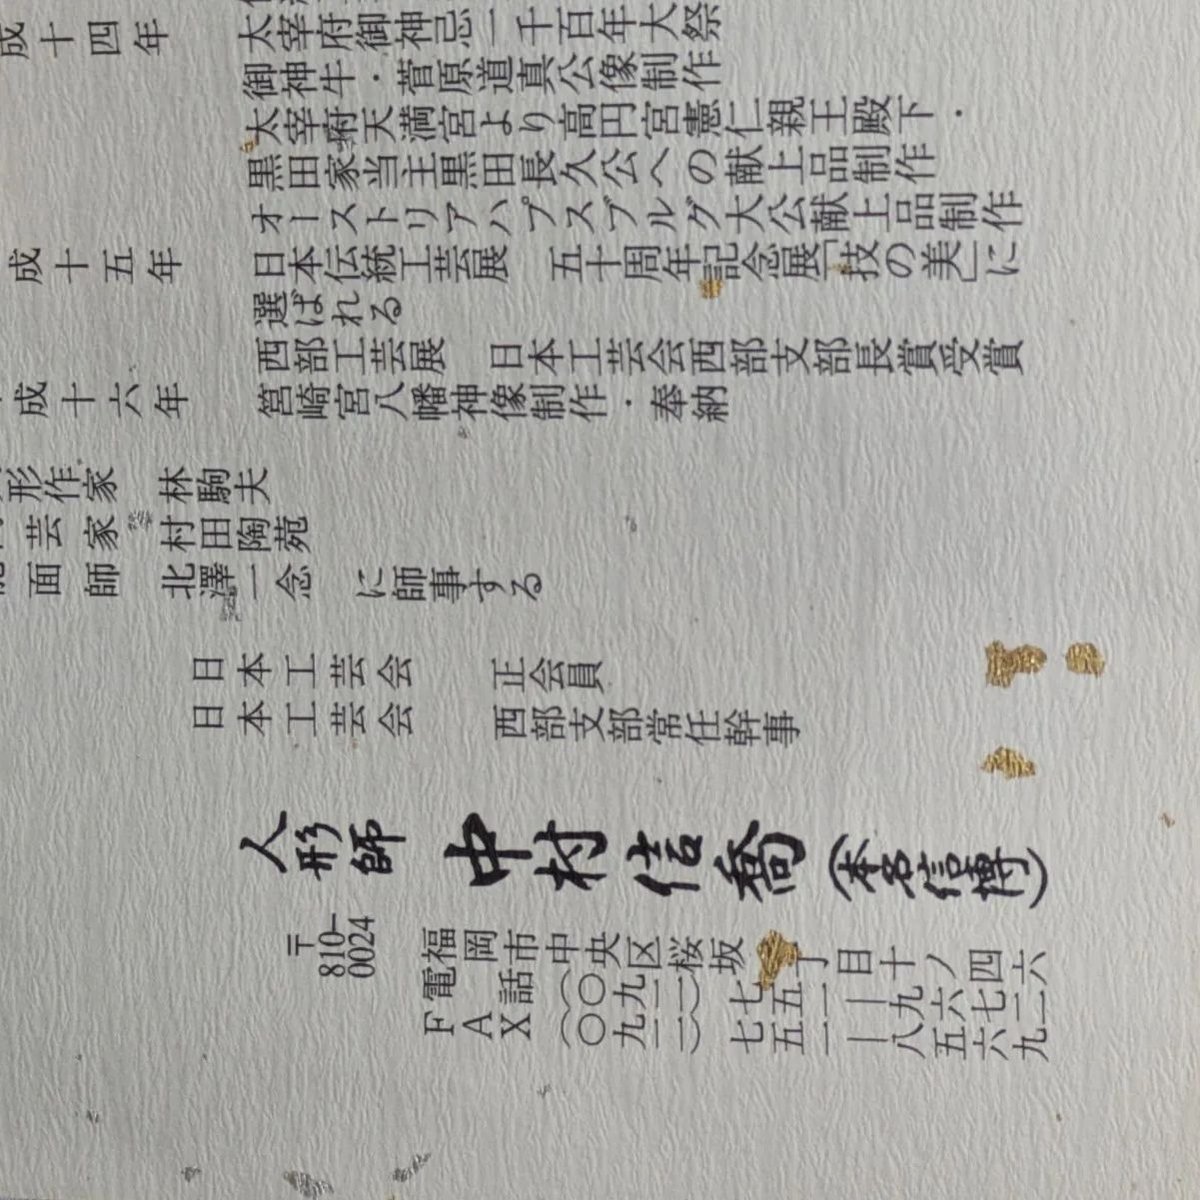 太宰府御神忌一千百年大祭
成十四年
御神牛・菅原道真公像制作
太宰府天満宮より高円宮憲仁親王殿下・
黒田家当主黒田長久公への献上品制作
オーストリアハプスブルグ大公献上品制作
成十五年 日本伝統工芸展 五十周年記念展「技の美」に
選ばれる
西部工芸展 日本工芸会西部支部長賞受賞
成十六年 筥崎宮八幡神像制作・奉納
形作家 林駒夫
芸家 村田陶苑
面師 北澤一念 に師事する
日本工芸会 正会員
日本工芸会 西部支部常任幹事
人形師 中村信喬(本名信博)
〒810-0024
福岡市中央区桜坂 丁目十ノ四六
電話(〇九二)七五一―九六七二
FAX(〇九二)七五一―八五六九